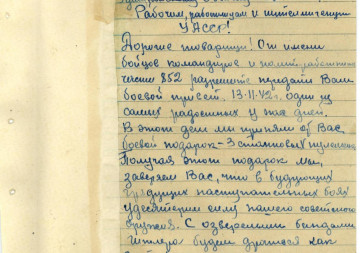 Рабочим, работницам и интеллигенции
УАССР!
Дорогие товарищи! От имени
бойцов командиров и политработников
части 852 разрешите передать Вам
боевой привет. 13.11.42г. один из
самых радостных у нас дней.
В этот день мы приняли от Вас
боевой подарок – 3 станковых пулемета
Получая этот подарок мы,
заверяем Вас, что в будующих
грядущих наступательных боях
удесятерим силу нашего советского
оружия. С озверелыми бандами
Гитлера будем драться как